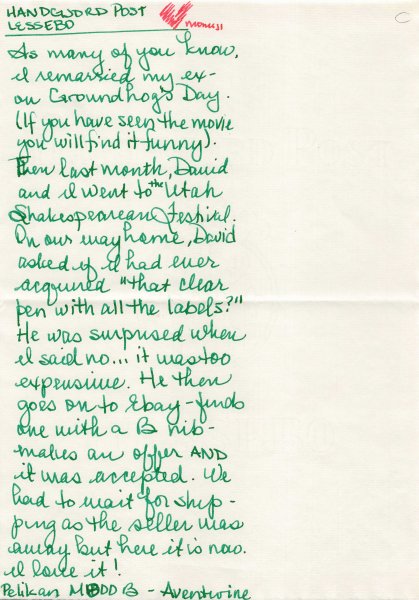 HANDWORD POST
LESSEBO
As many of you know,
I remarried my ex-
on Groundhog's Day.
(If you have seen the movie
you will find it funny).
Then last month, David
and I went to the Utah
Shakespearean Festival.
On our way home, David
asked if I had ever
acquired "that clear
pen with all the labels?"
He was surprised when
I said no... it was too
expensive. He then
goes on to Ebay - finds
one with a B nib -
makes an offer AND
it was accepted. We
had to wait for ship-
ping as the seller was
away but here it is now.
I love it!
Pelikan M800 B - Aventurine